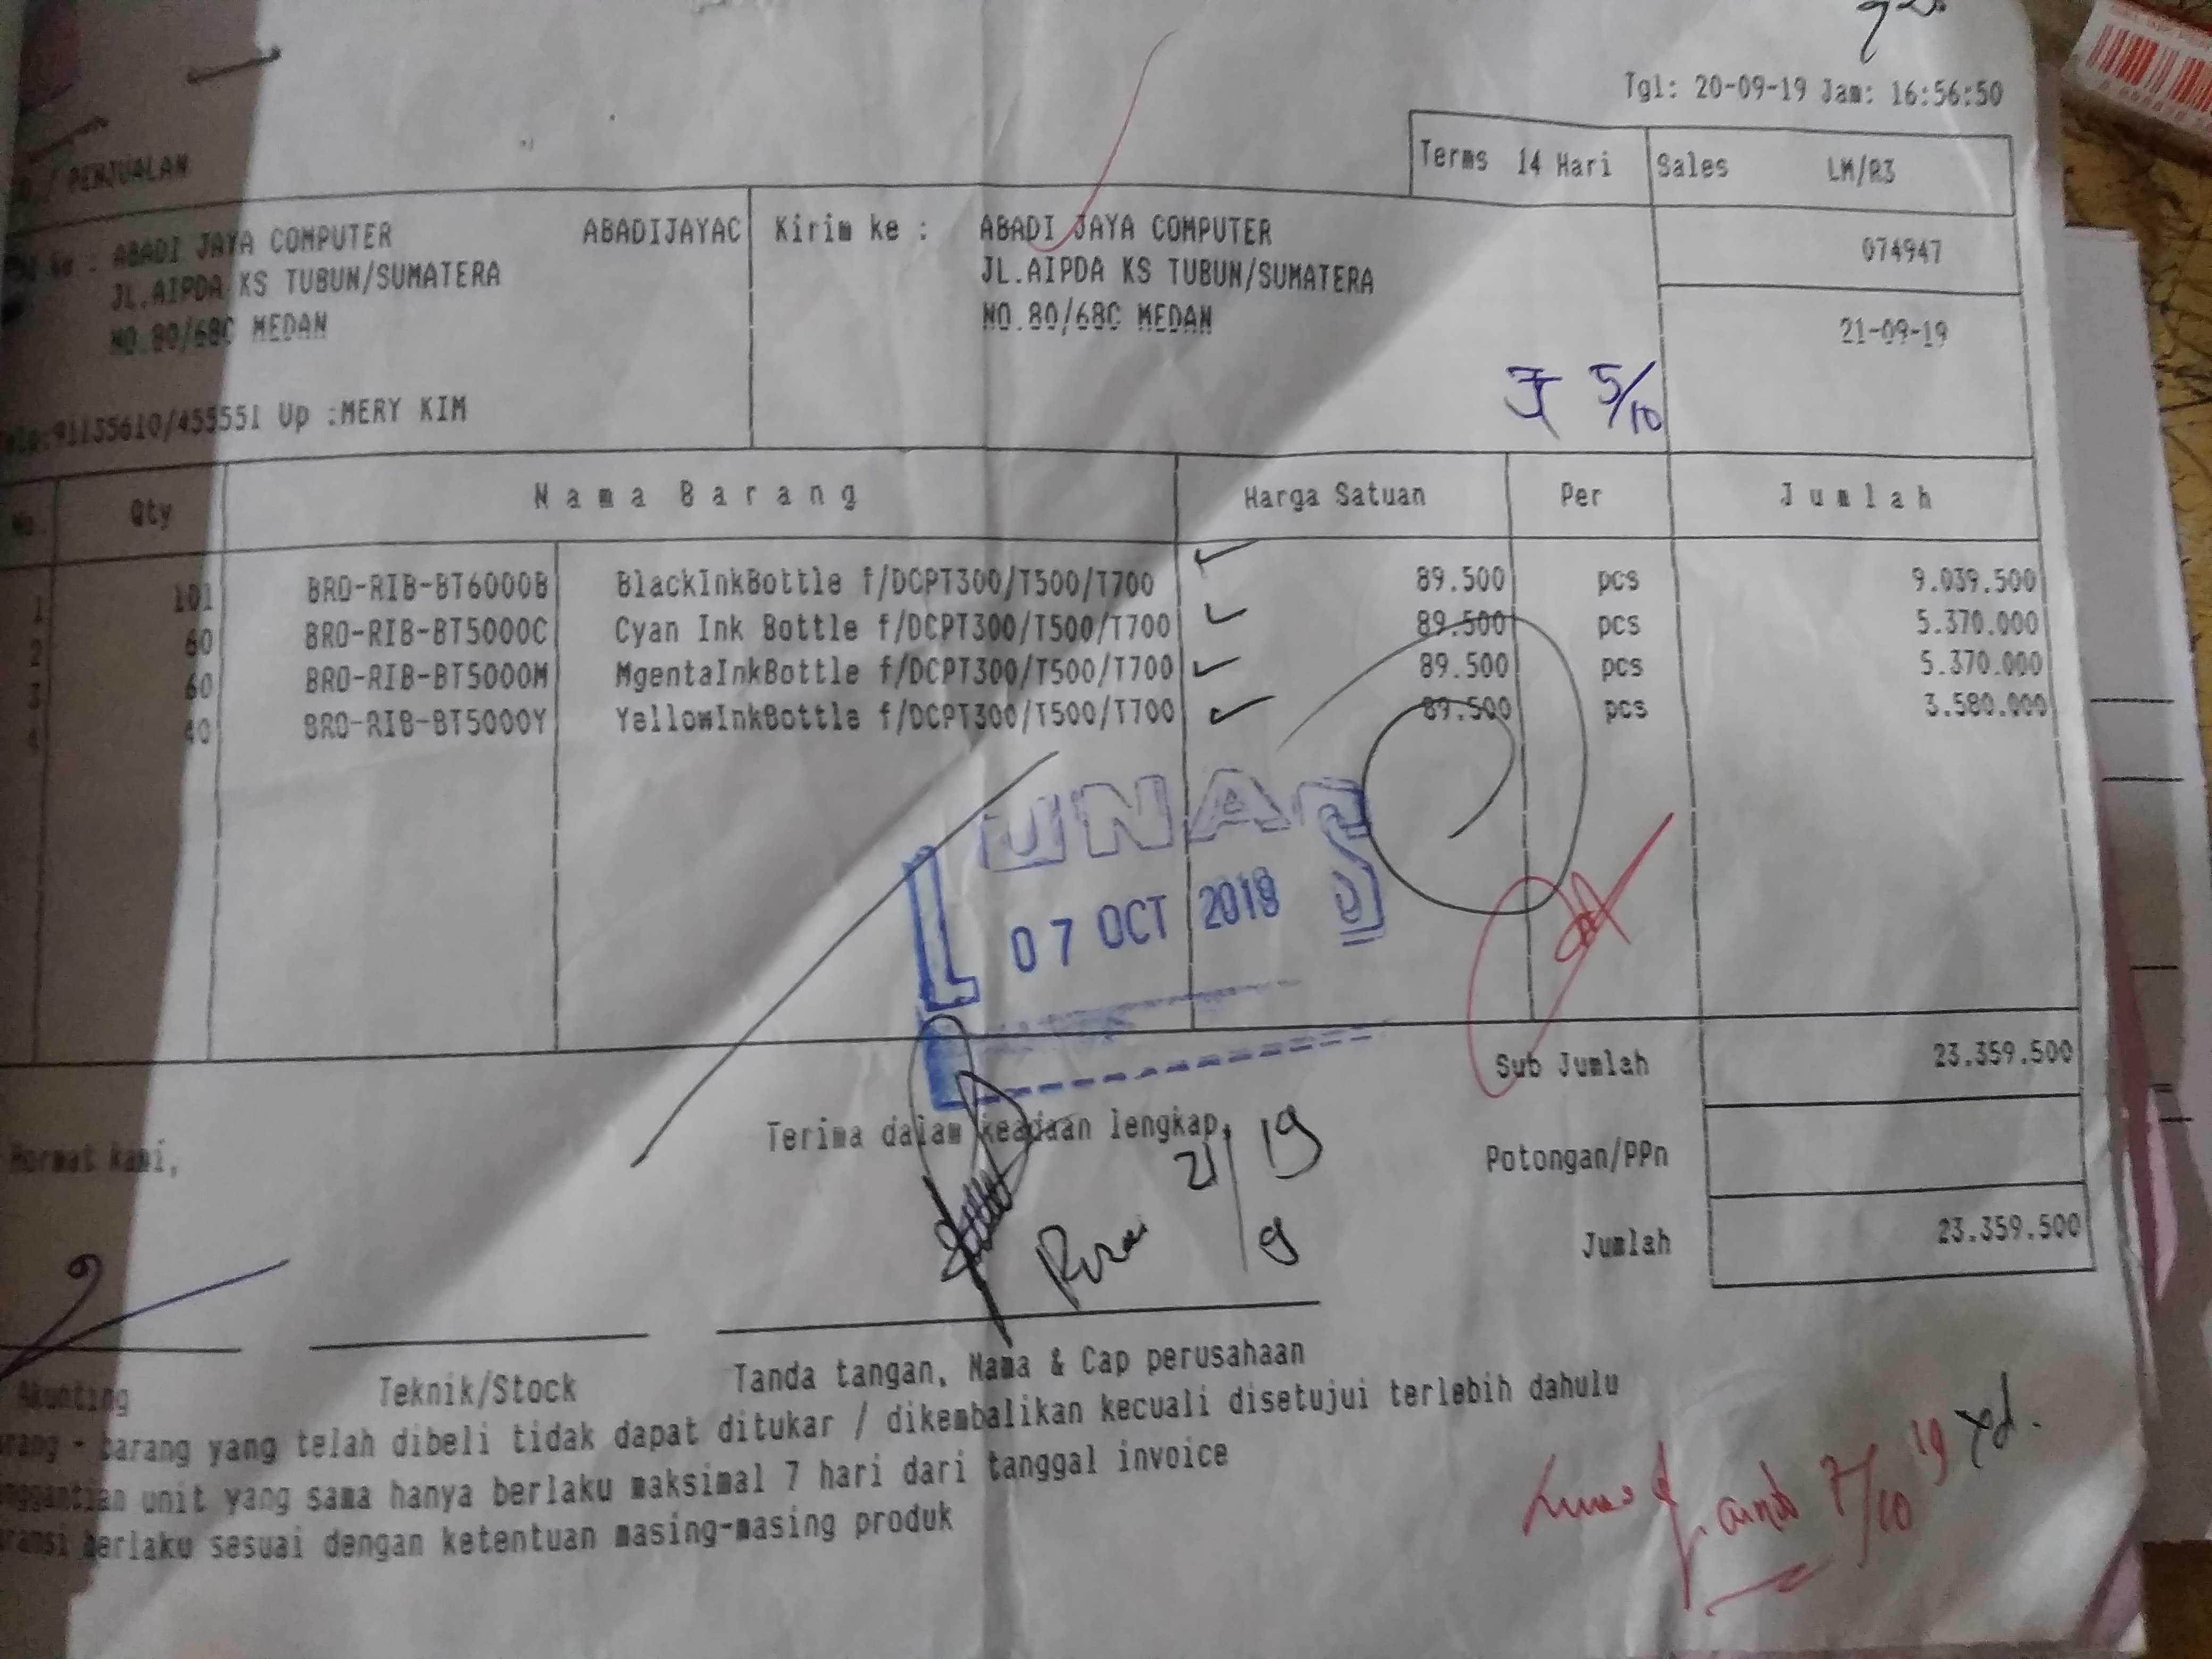 Tgl: 20-09-19 Jam: 16:56:50
Terms 14 Hari Sales LM/R3
/ PENJUALAN
ABADI JAYA COMPUTER ABADIJAYAC Kirim ke : ABADI JAYA COMPUTER
074947
JL.AIPDA KS TUBUN/SUMATERA JL.AIPDA KS TUBUN/SUMATERA
NO.80/68C MEDAN NO.80/68C MEDAN
21-09-19
5/10
91135610/455551 Up :MERY KIM
No. Qty Nama Barang Harga Satuan Per Jumlah
1 101 BRO-RIB-BT6000B BlackInkBottle f/DCPT300/T500/T700 89.500 pcs 9.039.500
2 60 BRO-RIB-BT5000C Cyan Ink Bottle f/DCPT300/T500/T700 89.500 pcs 5.370.000
3 60 BRO-RIB-BT5000M MgentaInkBottle f/DCPT300/T500/T700 89.500 pcs 5.370.000
4 40 BRO-RIB-BT5000Y YellowInkBottle f/DCPT300/T500/T700 89.500 pcs 3.580.000
LUNAS
07 OCT 2019
Sub Jumlah 23.359.500
Hormat kami, Terima dalam keadaan lengkap,
21/9 19
Potongan/PPn
Jumlah 23.359.500
Akunting Teknik/Stock Tanda tangan, Nama & Cap perusahaan
barang yang telah dibeli tidak dapat ditukar / dikembalikan kecuali disetujui terlebih dahulu
unit yang sama hanya berlaku maksimal 7 hari dari tanggal invoice
berlaku sesuai dengan ketentuan masing-masing produk
7/10 19